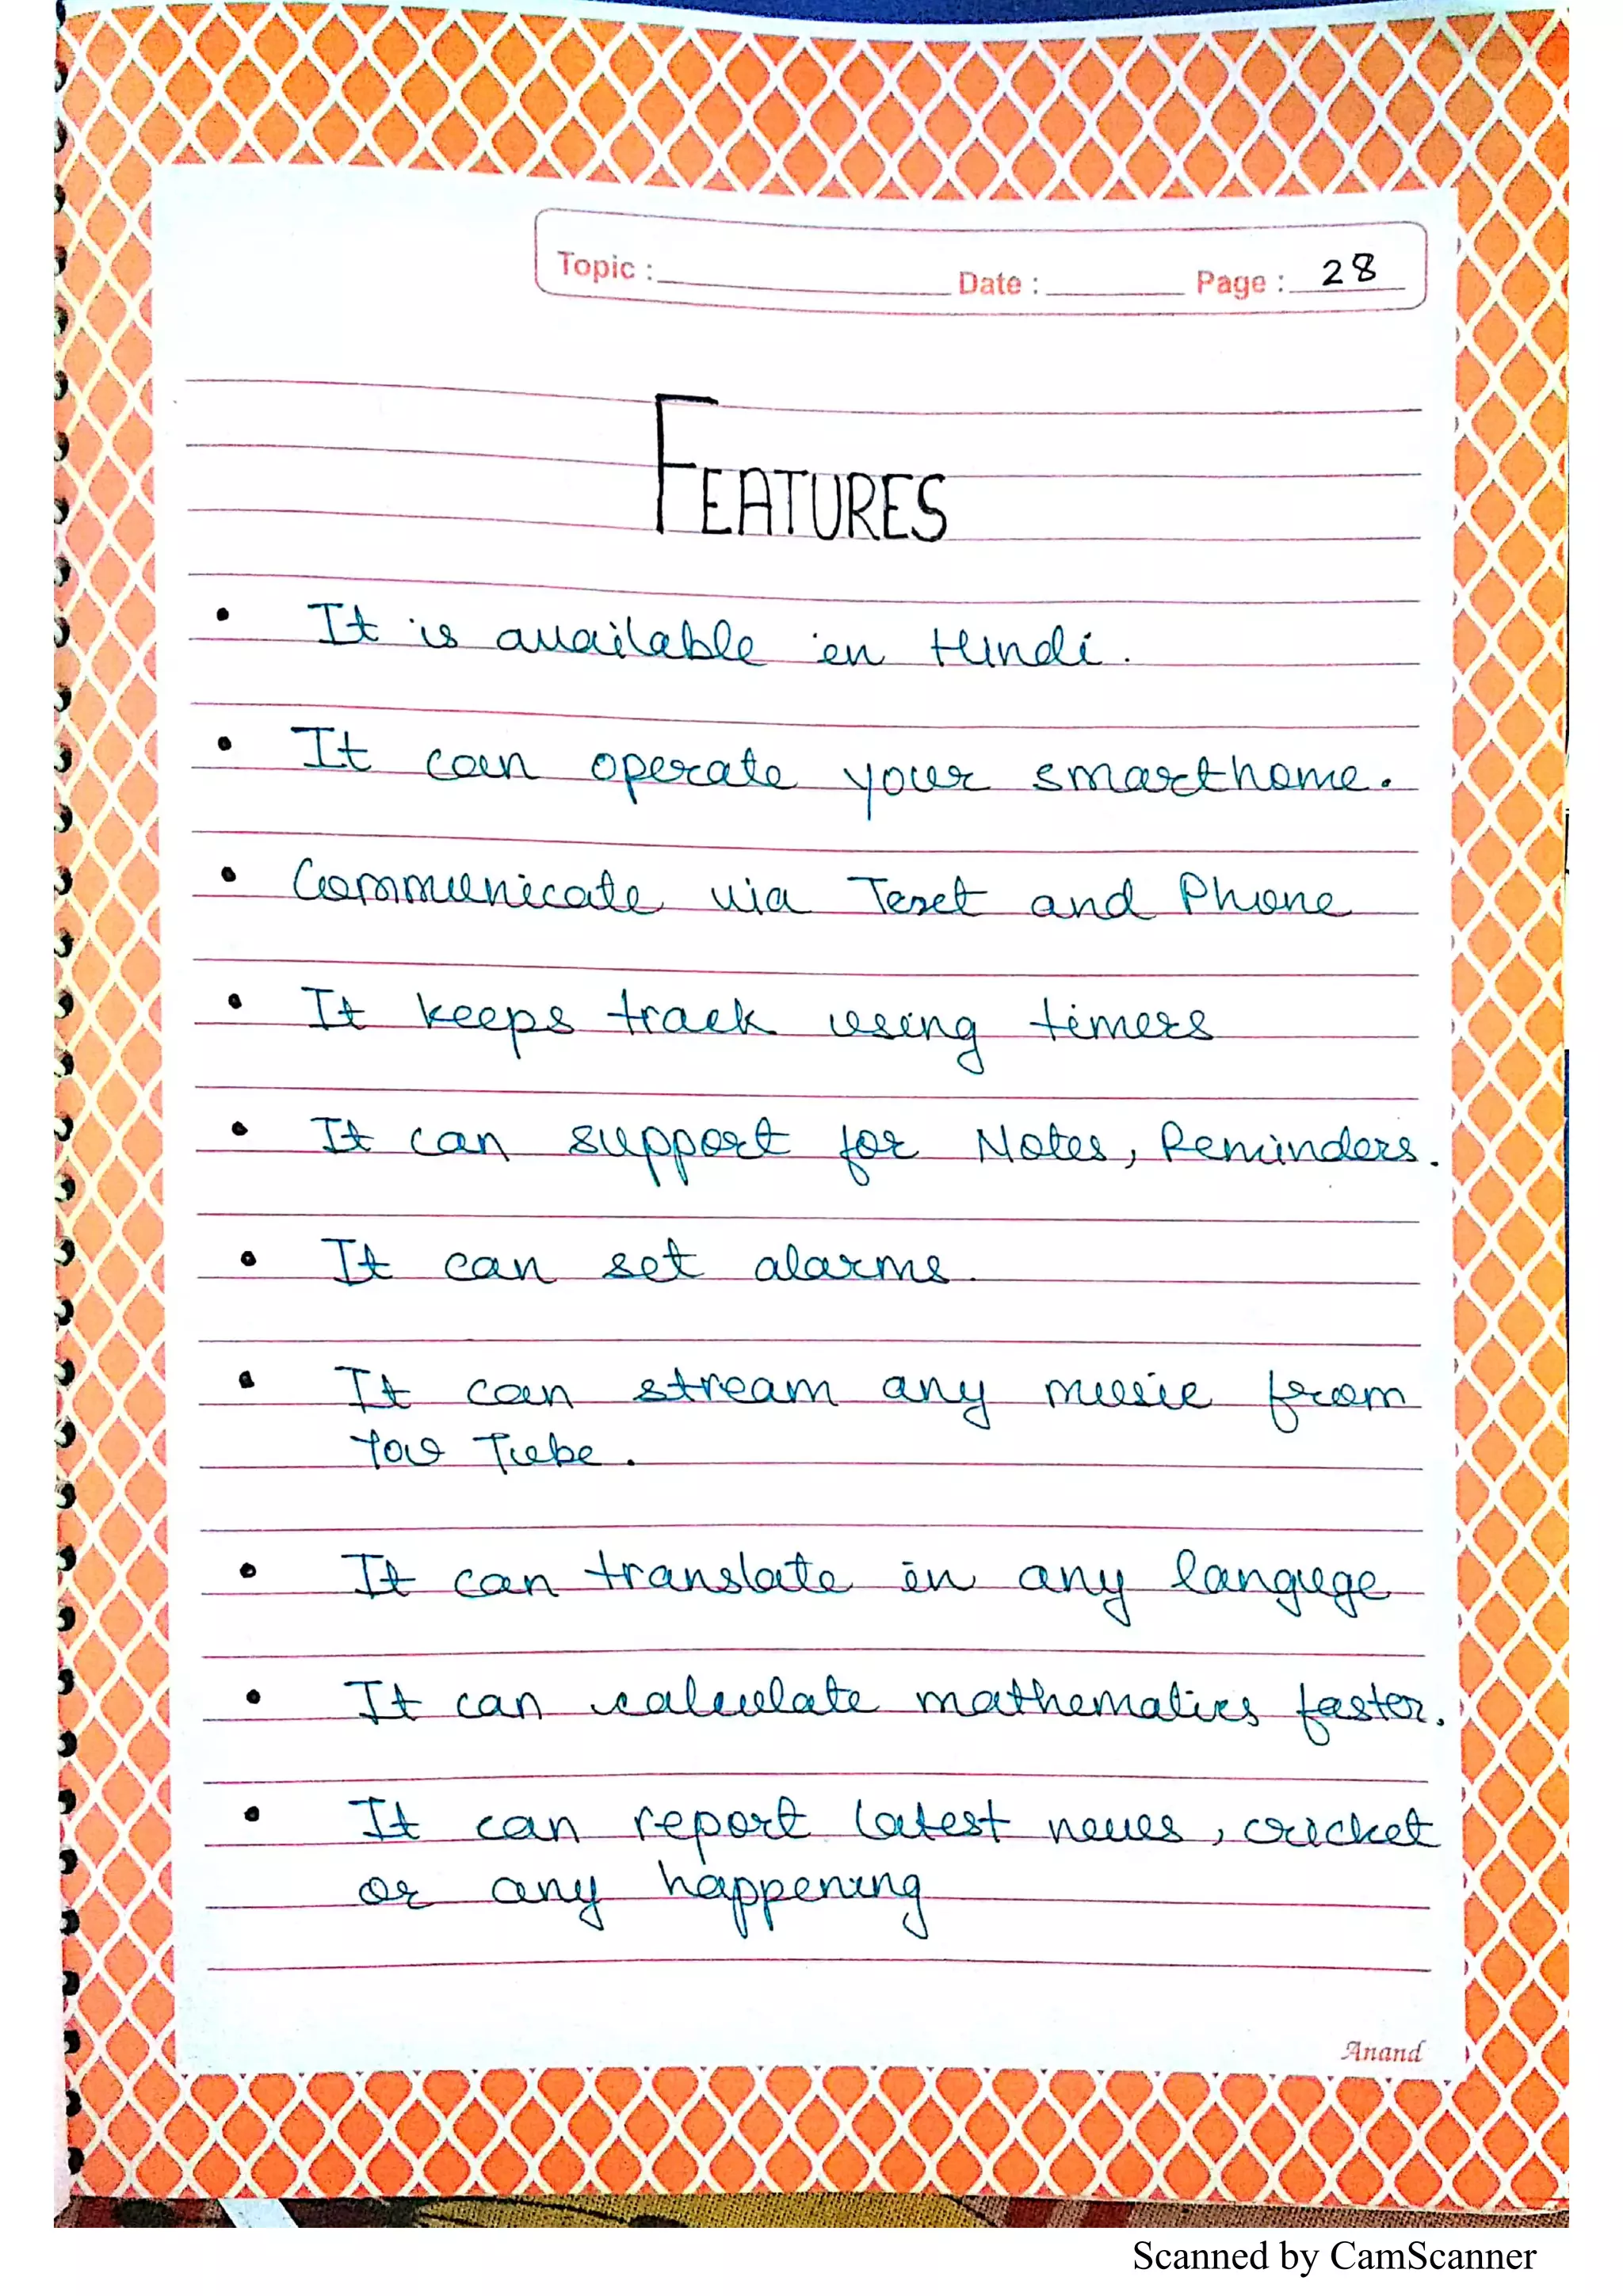 Topic : Date : Page : 28
FEATURES
• It is available in Hindi.
• It can operate your smarthome.
• Communicate via Text and Phone
• It keeps track using timers
• It can support for Notes, Reminders.
• It can set alarms.
• It can stream any music from
You Tube.
• It can translate in any languge
• It can calculate mathematics faster.
• It can report latest news, cricket
or any happening
Anand
Scanned by CamScanner